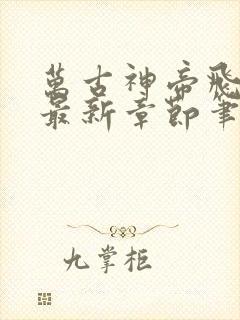 萬古神帝飛
最新章節筆
九掌柜